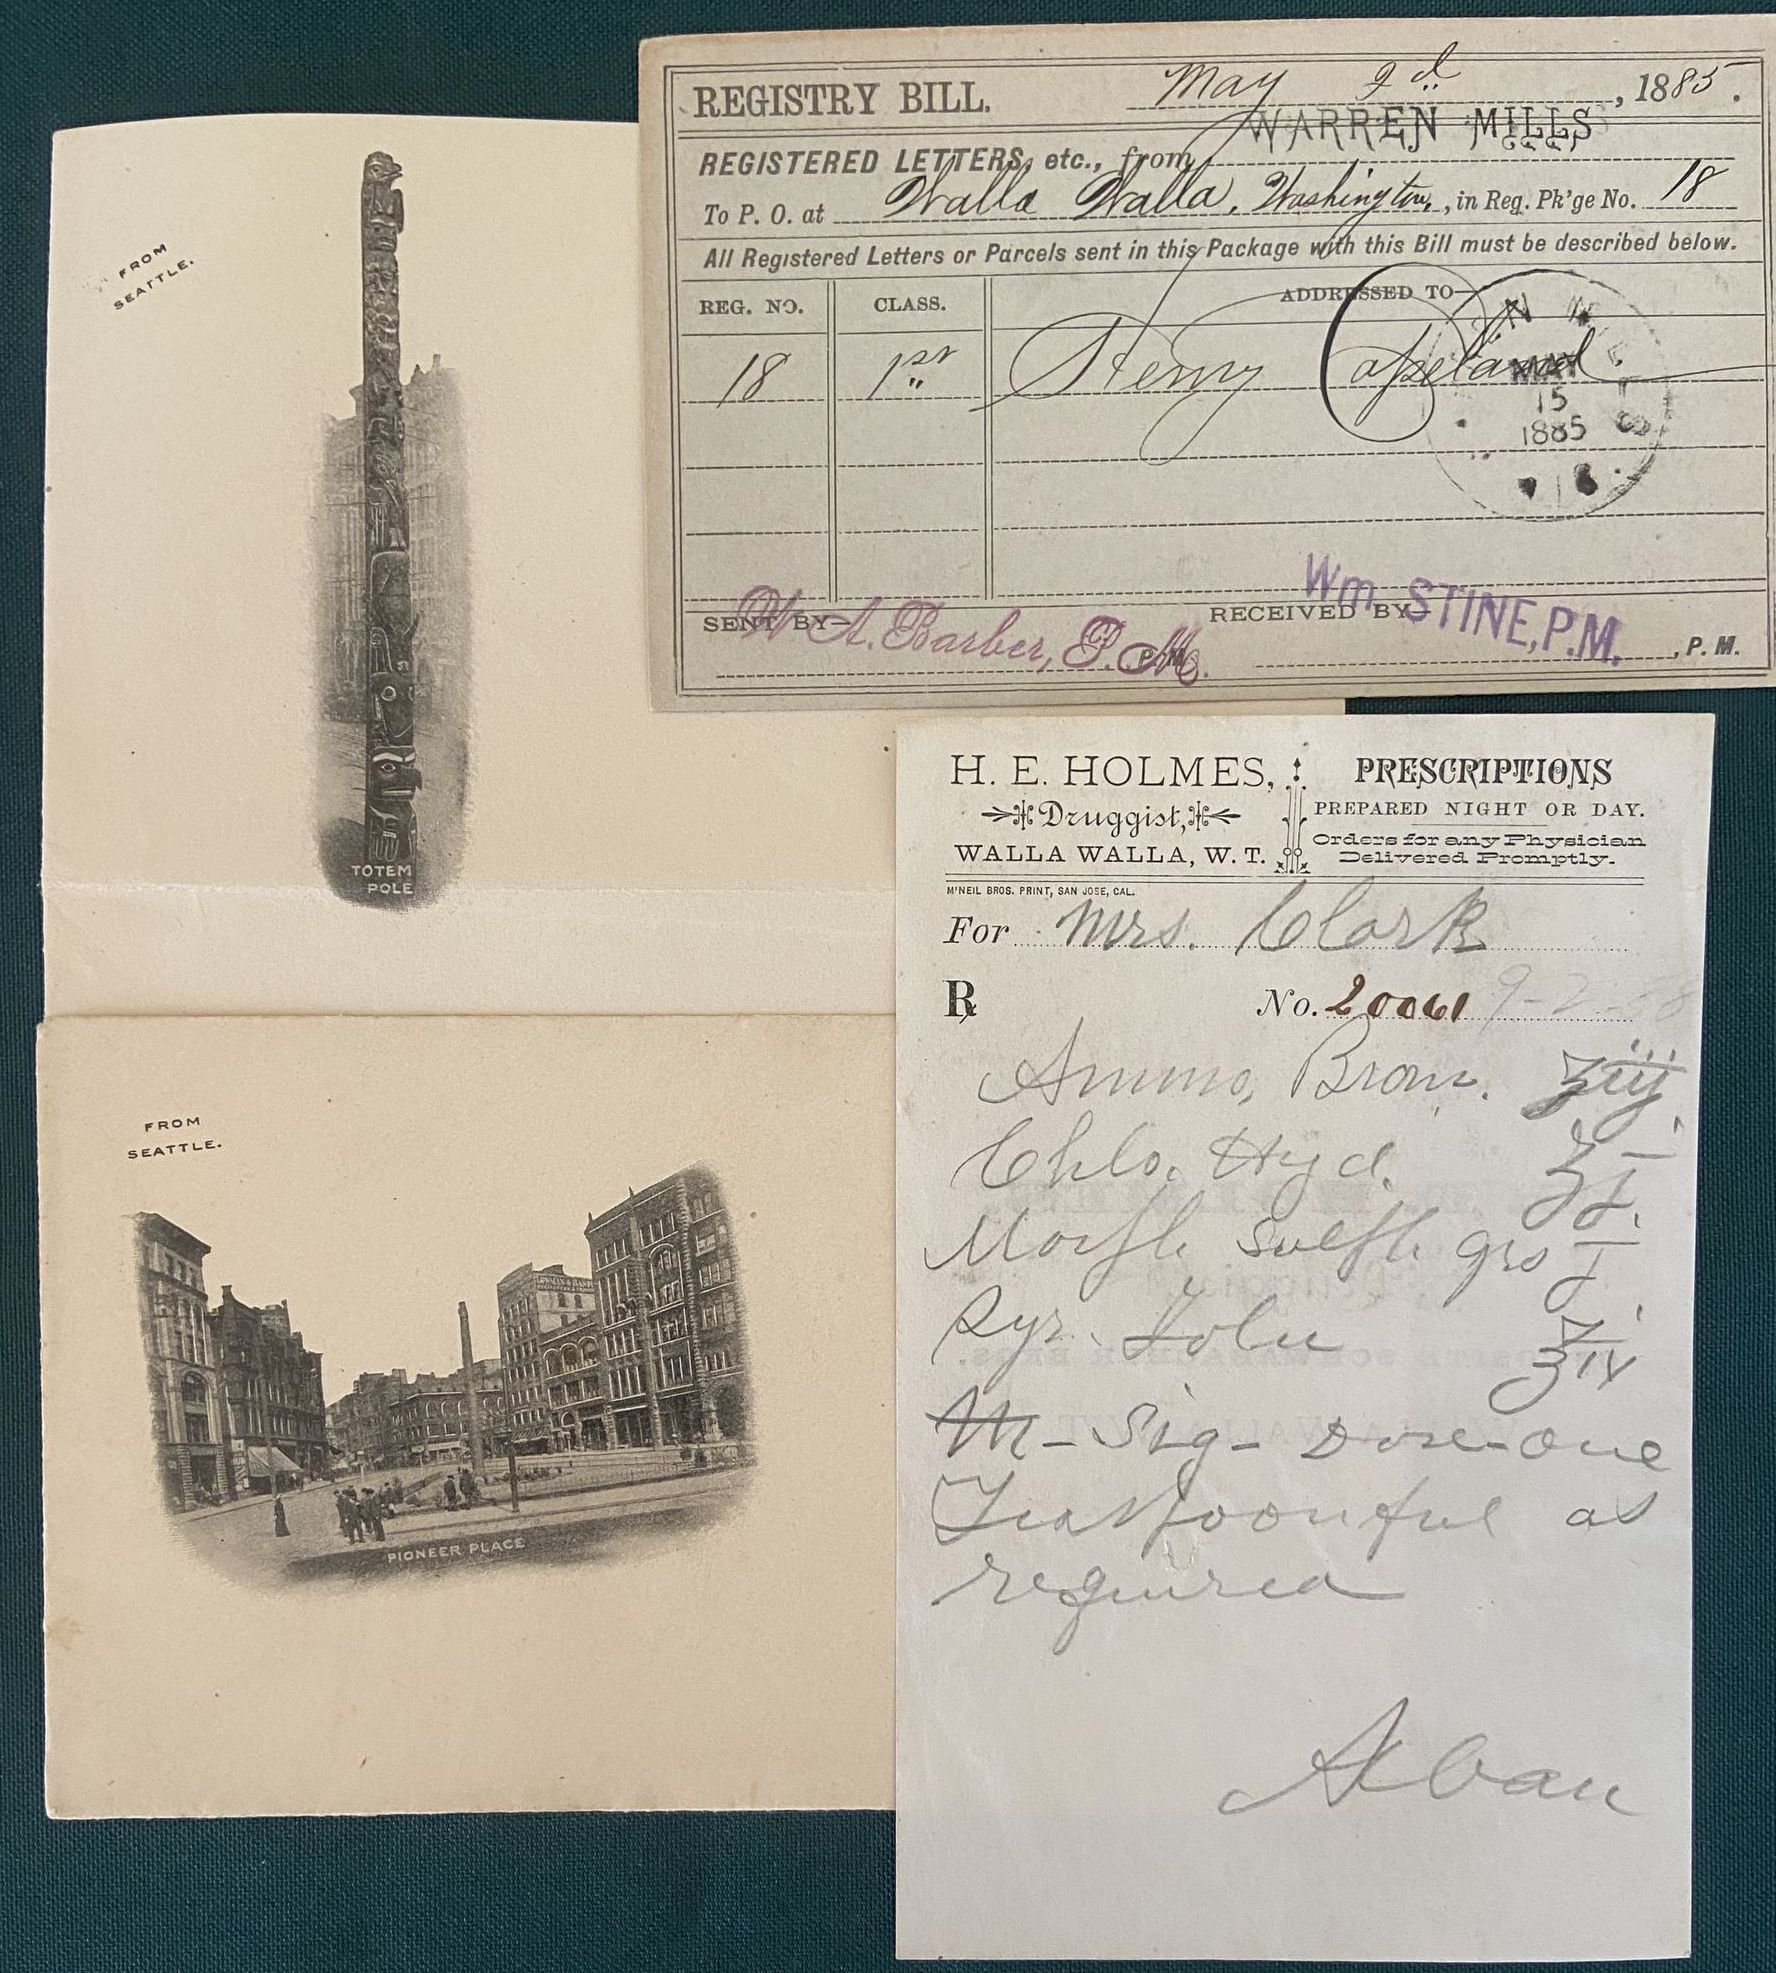 FROM
SEATTLE.
TOTEM
POLE
REGISTRY BILL. May 2d, 1885.
WARREN MILLS
REGISTERED LETTERS, etc., from
To P. O. at Walla Walla, Washington, in Reg. Pk'ge No. 18
All Registered Letters or Parcels sent in this Package with this Bill must be described below.
REG. NO. CLASS. ADDRESSED TO—
18 1st Henry Copeland
MAY
15
1885
SENT BY— W A. Barber, P. M. P. M.
RECEIVED BY— Wm. STINE, P.M. , P. M.
H. E. HOLMES,
Druggist,
WALLA WALLA, W. T.
PRESCRIPTIONS
PREPARED NIGHT OR DAY.
Orders for any Physician
Delivered Promptly.
M'NEIL BROS. PRINT, SAN JOSE, CAL.
For Mrs. Clark
℞ No. 20061
Ammo, Brom. ʒiij
Chlo. Hyd. ʒj
Morph Sulph grs j
Syr. Tolu ℥iv
M - Sig - Dose - One
Teaspoonful as
required
FROM
SEATTLE.
PIONEER PLACE